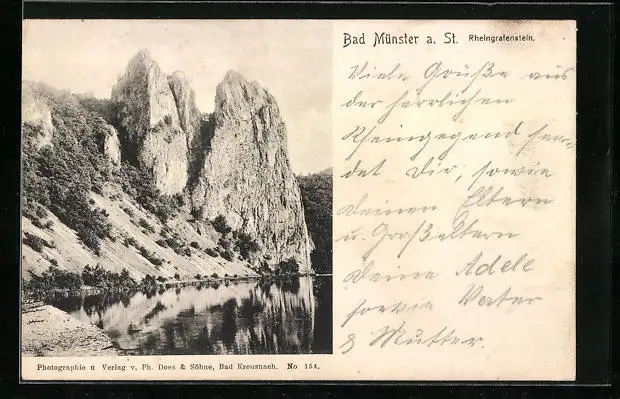 Bad Münster a. St. Rheingrafenstein.
Viele Grüße aus
der herrlichen
Rheingegend sen-
det Dir, sowie
Deinen Eltern
u. Großeltern
Deine Adele
sowie Vater
& Mutter.
Photographie u Verlag v. Ph. Does & Söhne, Bad Kreuznach. No 154.